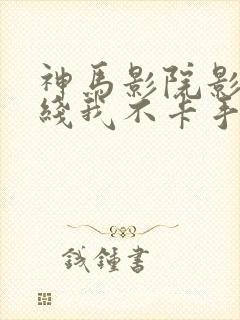 神马影院影
线我不卡手
钱锺书